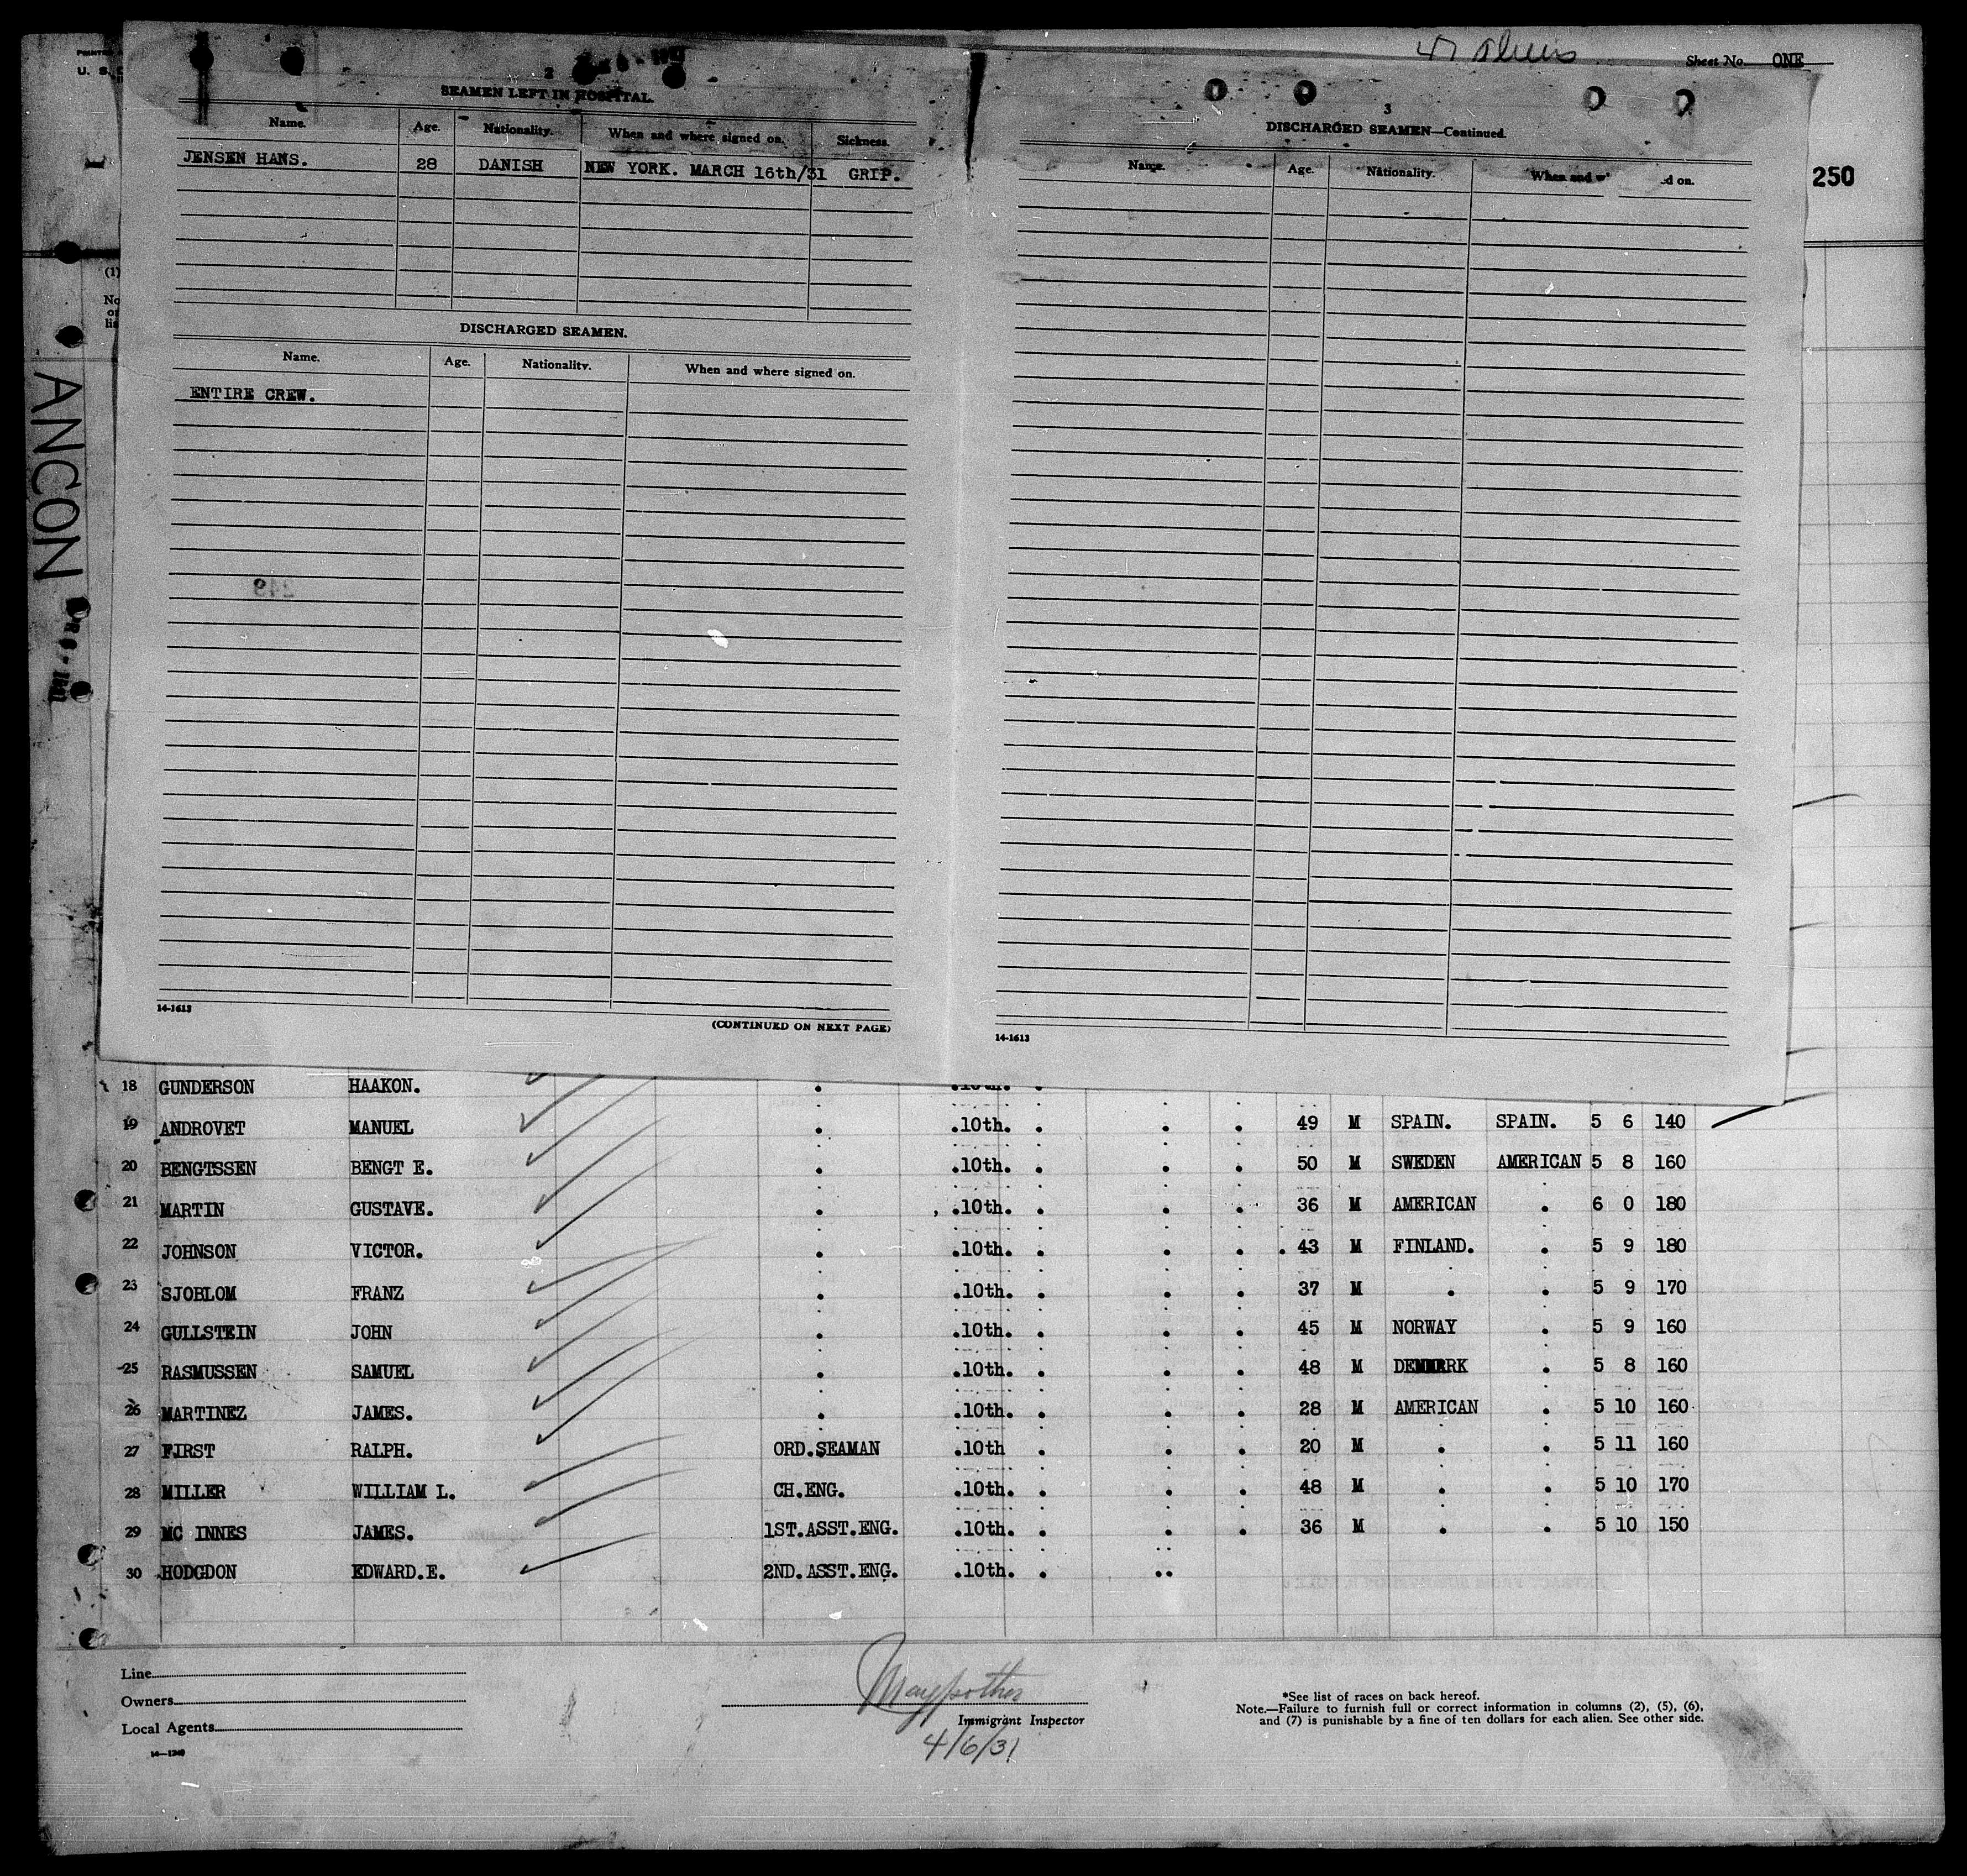 47 Aliens
Sheet No. ONE
250
U. S.
ANCON
2
SEAMEN LEFT IN HOSPITAL.
Name. Age. Nationality. When and where signed on. Sickness.
JENSEN HANS. 28 DANISH NEW YORK. MARCH 16th/31 GRIP.
DISCHARGED SEAMEN.
Name. Age. Nationality. When and where signed on.
ENTIRE CREW.
249
14-1613
(CONTINUED ON NEXT PAGE)
3
DISCHARGED SEAMEN—Continued.
Name. Age. Nationality. When and w d on.
14-1613
18 GUNDERSON HAAKON. . .10th. .
19 ANDROVET MANUEL . .10th. . . . 49 M SPAIN. SPAIN. 5 6 140
20 BENGTSSEN BENGT E. . .10th. . . . 50 M SWEDEN AMERICAN 5 8 160
21 MARTIN GUSTAVE. . .10th. . . . 36 M AMERICAN . 6 0 180
22 JOHNSON VICTOR. . .10th. . . . 43 M FINLAND. . 5 9 180
23 SJOBLOM FRANZ . .10th. . . . 37 M . . 5 9 170
24 GULLSTEIN JOHN . .10th. . . . 45 M NORWAY . 5 9 160
25 RASMUSSEN SAMUEL . .10th. . . . 48 M DENMARK . 5 8 160
26 MARTINEZ JAMES. . .10th. . . . 28 M AMERICAN . 5 10 160
27 FIRST RALPH. ORD.SEAMAN .10th . . . 20 M . . 5 11 160
28 MILLER WILLIAM L. CH.ENG. .10th. . . . 48 M . . 5 10 170
29 MC INNES JAMES. 1ST.ASST.ENG. .10th. . . . 36 M . . 5 10 150
30 HODGDON EDWARD.E. 2ND.ASST.ENG. .10th. . ..
Line
Owners
Local Agents
14—1240
Immigrant Inspector
4/6/31
*See list of races on back hereof.
Note.—Failure to furnish full or correct information in columns (2), (5), (6),
and (7) is punishable by a fine of ten dollars for each alien. See other side.